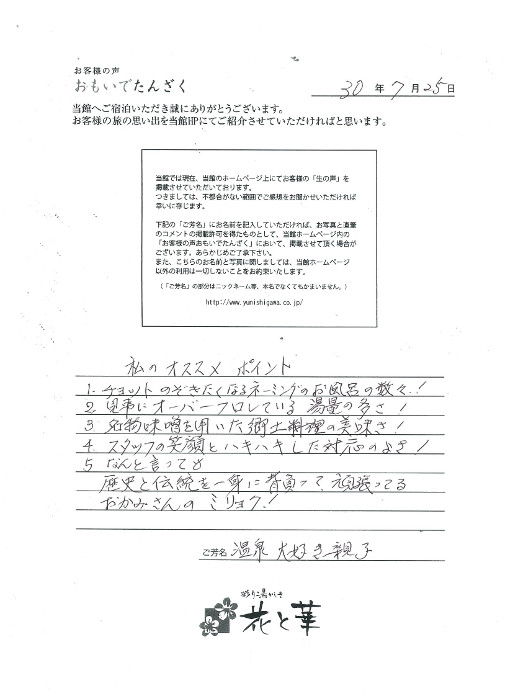 お客様の声
おもいでたんざく
30年7月25日
当館へご宿泊いただき誠にありがとうございます。
お客様の旅の思い出を当館HPにてご紹介させていただければと思います。
当館では現在、当館のホームページ上にてお客様の「生の声」を
掲載させていただいております。
つきましては、不都合がない範囲でご感想をお聞かせいただければ
幸いに存じます。
下記の「ご芳名」にお名前を記入していただければ、お写真と直筆
のコメントの掲載許可を得たものとして、当館ホームページ内の
「お客様の声おもいでたんざく」において、掲載させて頂く場合が
ございます。あらかじめご了承下さい。
また、こちらのお名前と写真に関しましては、当館ホームページ
以外の利用は一切しないことをお約束いたします。
(「ご芳名」の部分はニックネーム等、本名でなくてもかまいません。)
http://www.yunishigawa.co.jp/
私のオススメ ポイント
1. チョットのぞきたくなるネーミングのお風呂の数々!
2 見事にオーバーフロしている 湯量の多さ!
3. 名物味噌を用いた郷土料理の美味さ!
4. スタッフの笑顔とハキハキした対応のよさ!
5 なんと言っても
歴史と伝統を一身に背負って 頑張ってる
おかみさんの ミリョク!
ご芳名 温泉大好き親子
花と華